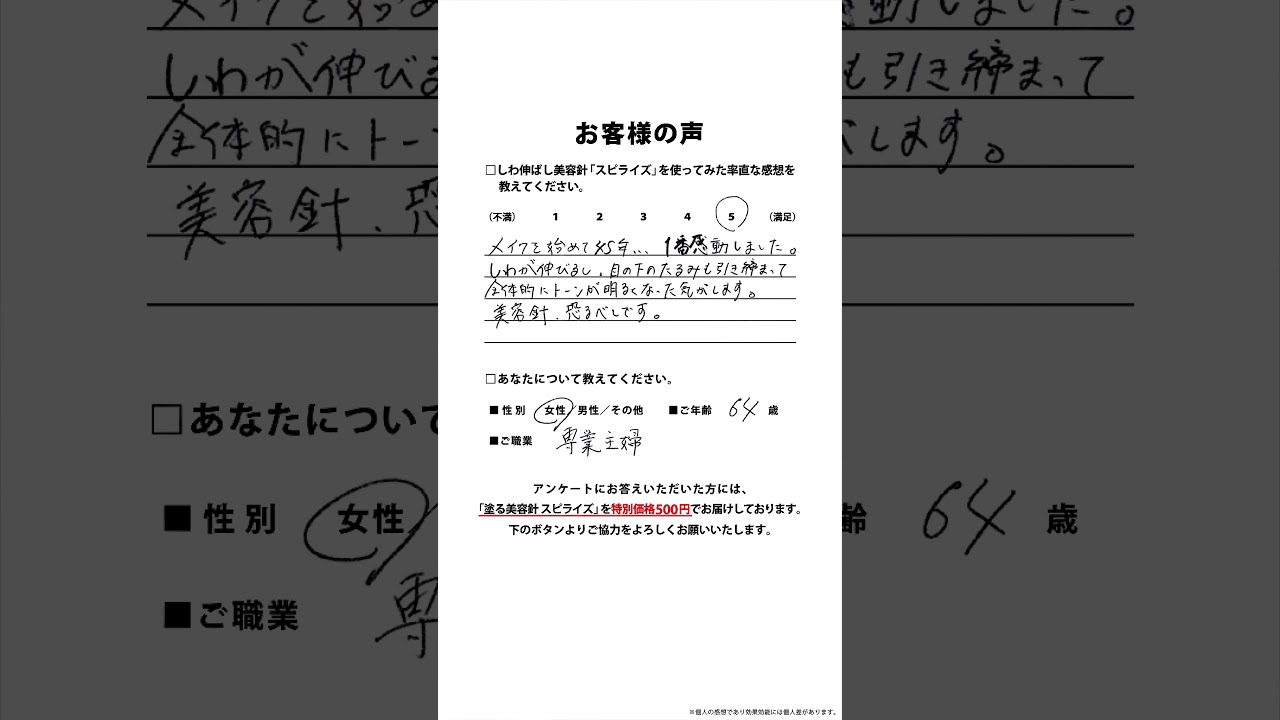 お客様の声
□しわ伸ばし美容針「スピライズ」を使ってみた率直な感想を
教えてください。
(不満) 1 2 3 4 5 (満足)
メイクを始めて45年... 1番感動しました。
しわが伸びるし、目の下のたるみも引き締まって
全体的にトーンが明るくなった気がします。
美容針、恐るべしです。
□あなたについて教えてください。
■性別 女性/男性/その他 ■ご年齢 64 歳
■ご職業 専業主婦
アンケートにお答えいただいた方には、
「塗る美容針 スピライズ」を特別価格500円でお届けしております。
下のボタンよりご協力をよろしくお願いいたします。
※個人の感想であり効果効能には個人差があります。